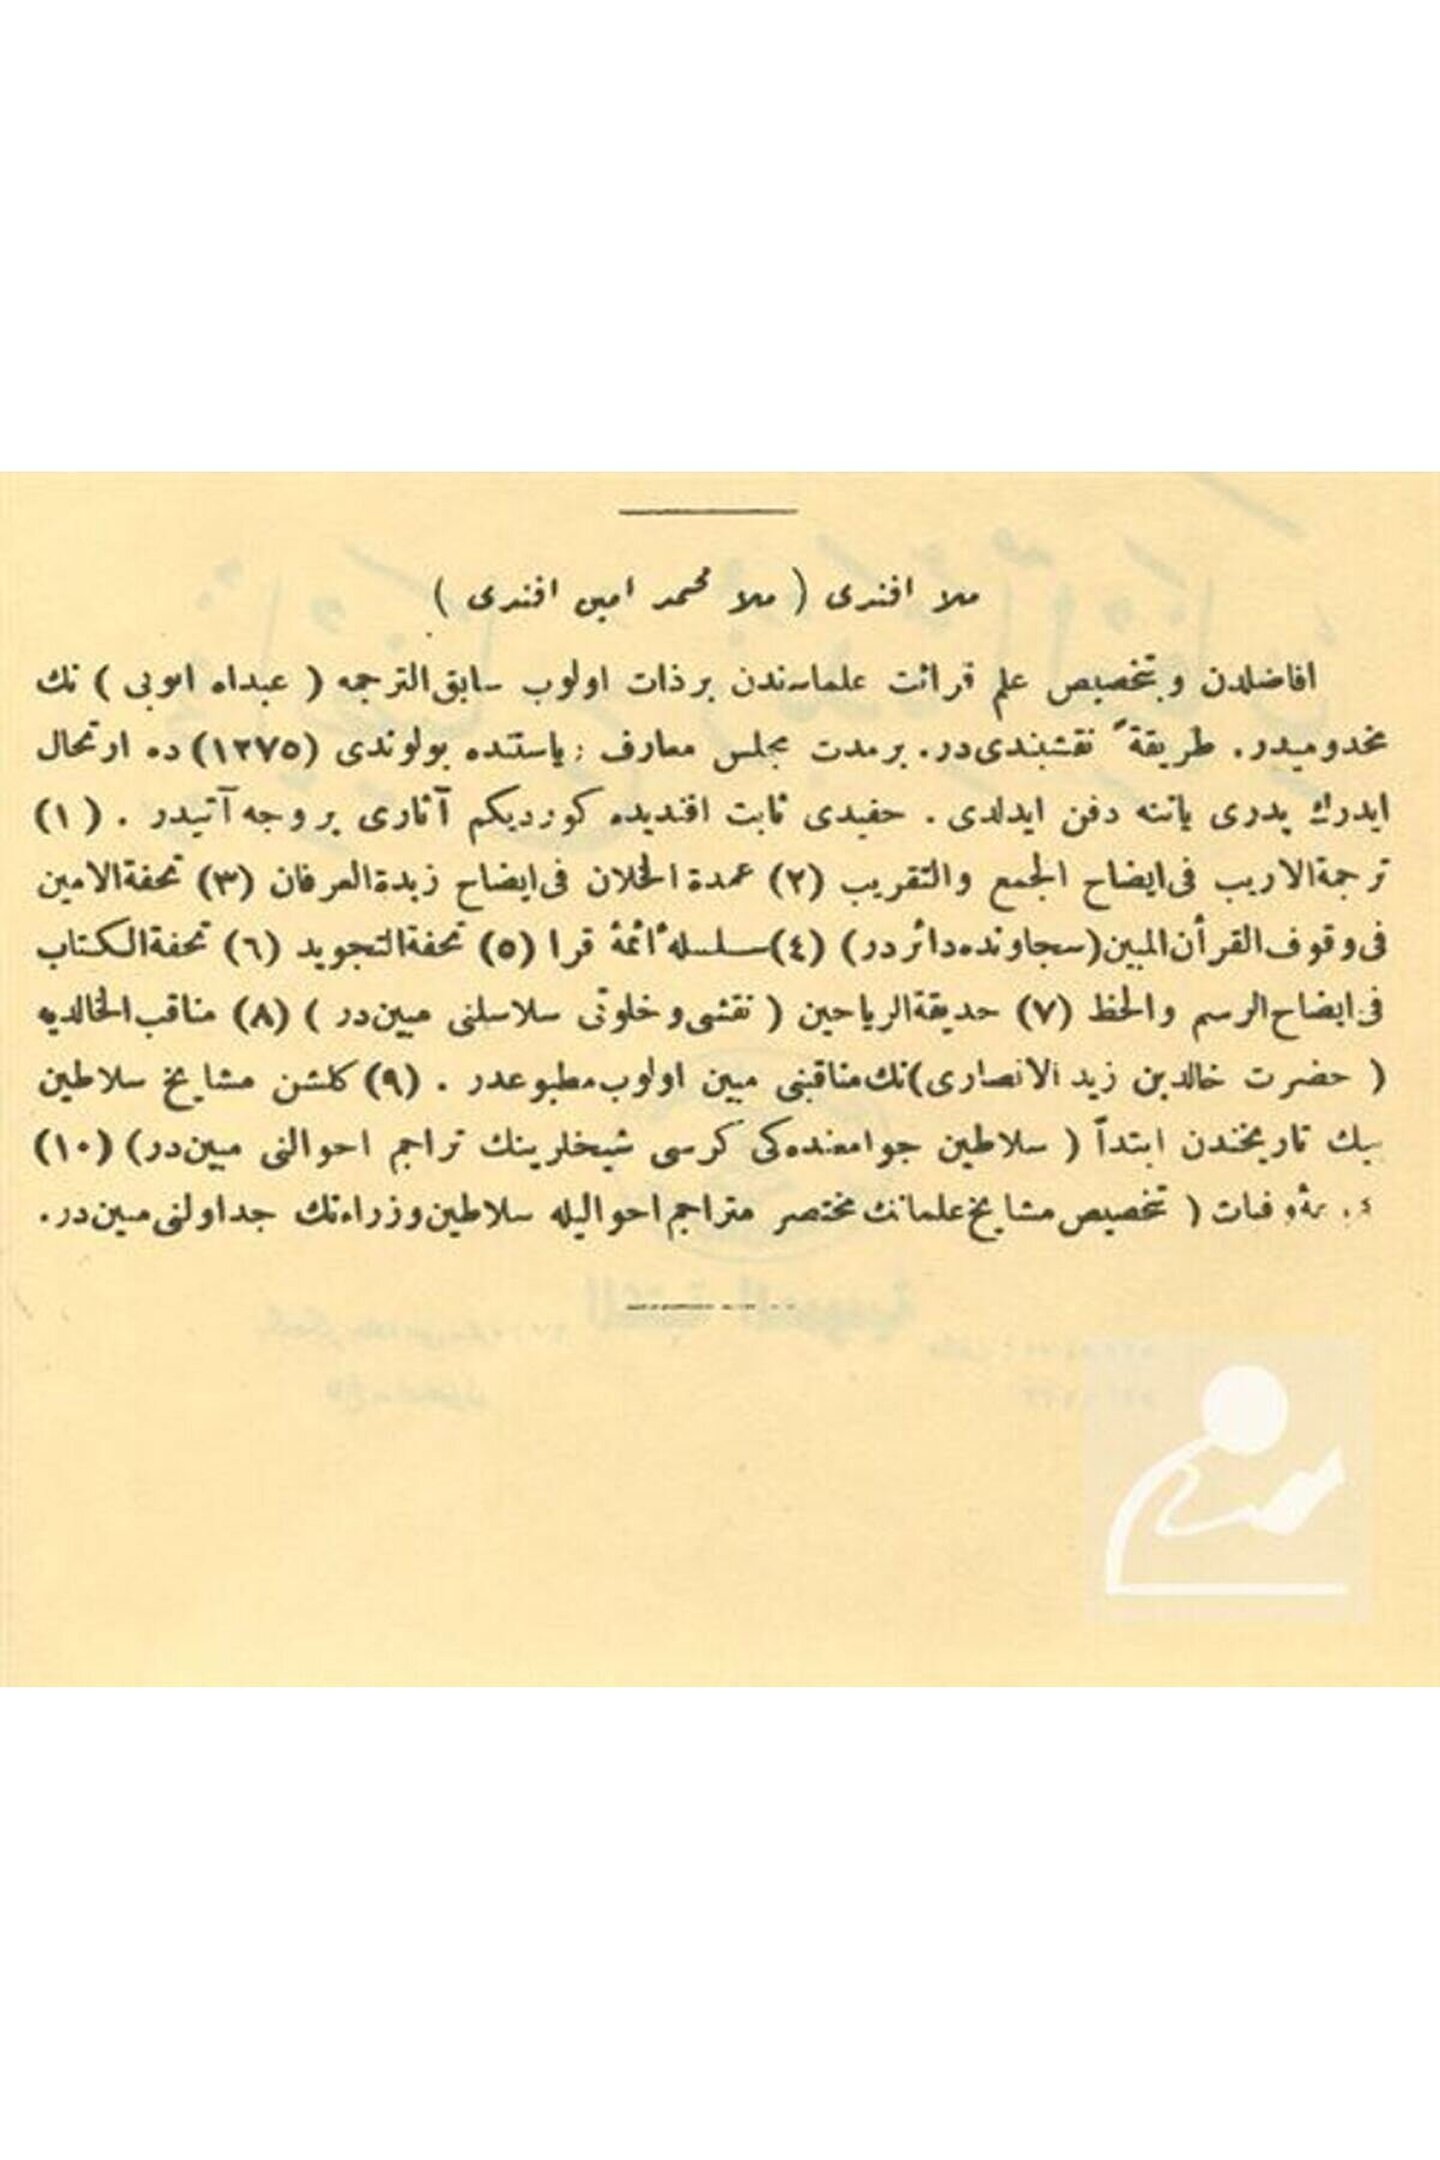 ملا افندی ( ملا محمد امین افندی )
افاضلدن و بتخصیص علم قرائت علماسندن برذات اولوب سابق‌الترجمه ( عبداه ایوبی ) نك
مخدومیدر. طریقةً نقشبندی‌در. برمدت مجلس معارف ریاستنده بولوندی (١٢٧٥) ده ارتحال
ایدرك پدری یاننه دفن ایدلدی. حفیدی ثابت افندیده کوردیکم آثاری بروجه آتیدر . (١)
ترجمةالاریب فی‌ایضاح الجمع والتقریب (٢) عمدة الخلان فی‌ایضاح زبدةالعرفان (٣) تحفةالامین
فی‌وقوف‌القرأن‌المبین(سجاونده‌دائردر) (٤)سلسلهٔ ائمهٔ قرا (٥) تحفةالتجوید (٦) تحفةالکتاب
فی‌ایضاح‌الرسم والخط (٧) حدیقةالریاحین ( نقشی‌وخلوتی سلاسلنی مبین‌در ) (٨) مناقب‌الخالدیه
( حضرت خالدبن زید الانصاری)نك‌مناقبنی مبین اولوب‌مطبوعدر . (٩) کلشن مشایخ سلاطین
بیك تاریخندن ابتداً ( سلاطین جوامعنده‌کی کرسی شیخلرینك تراجم احوالنی مبین‌در) (١٠)
وفیات ( تخصیص مشایخ‌علمانك‌مختصر متراجم‌احوالیله سلاطین‌وزراءنك جداولنی‌مبین‌در.